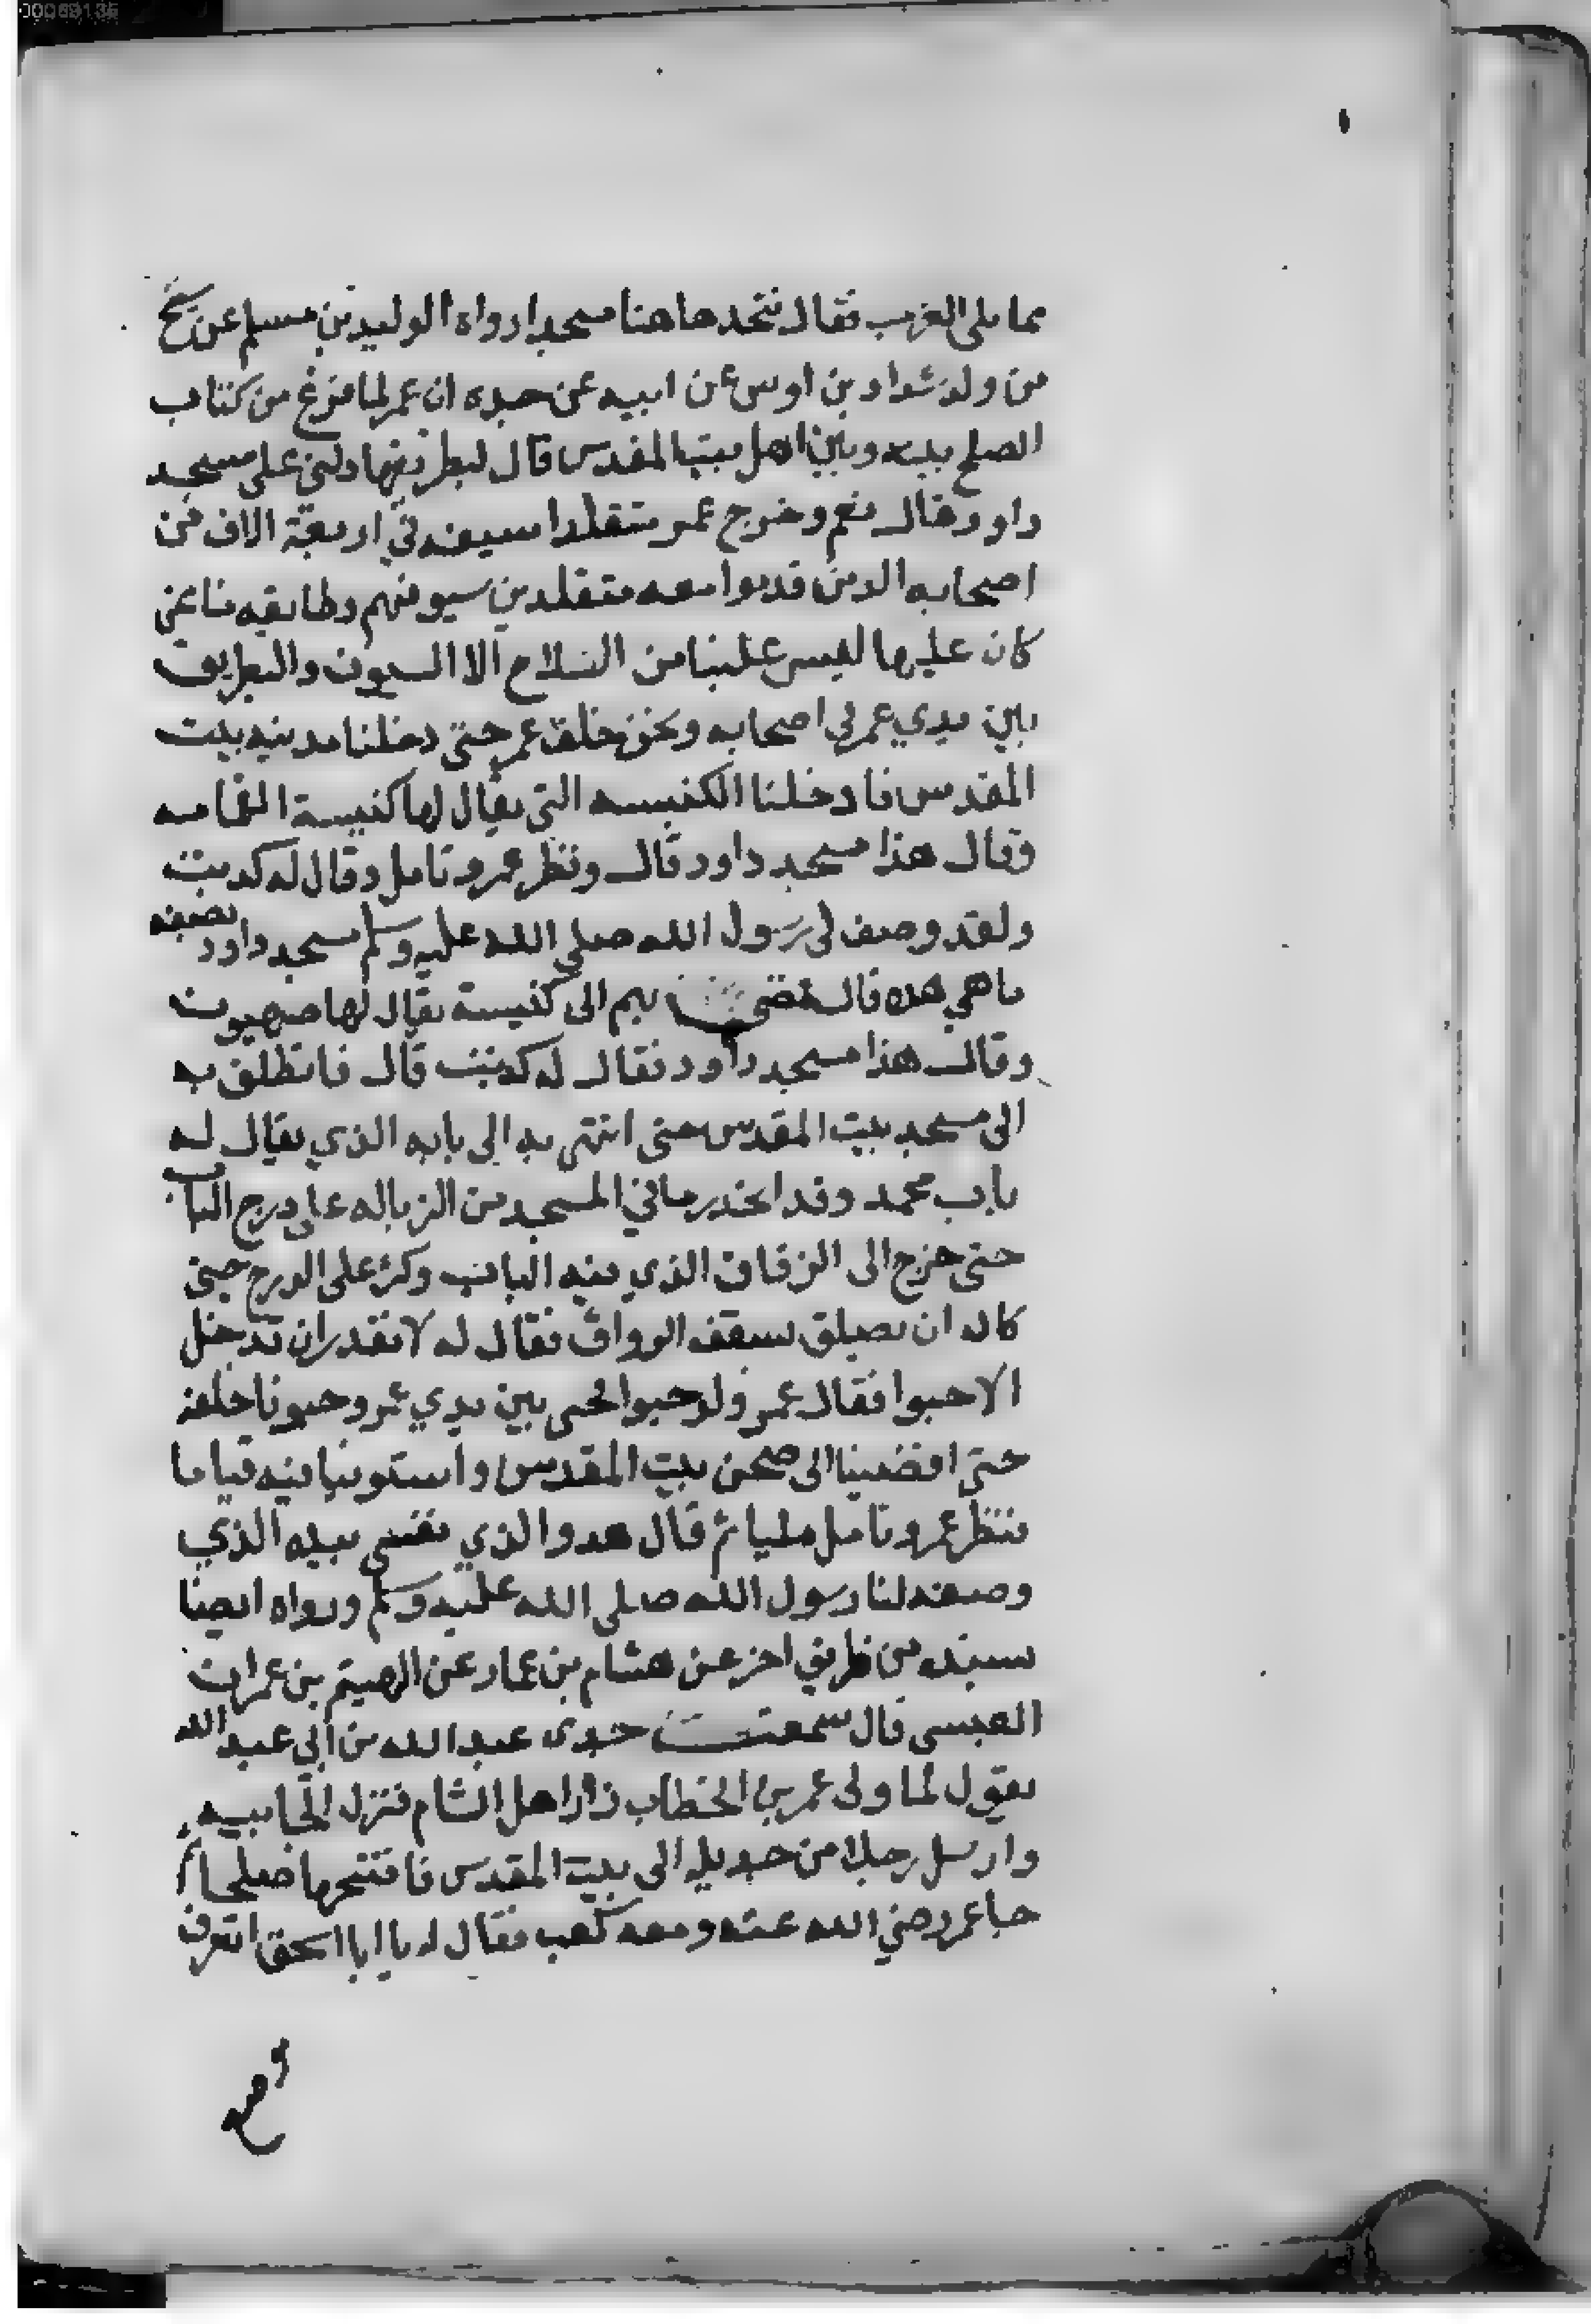 00069135
مما يلى الغرب فقال نتخد هاهنا مسجدا رواه الوليد بن مسلم عن شيخ
من ولد شداد بن اوس عن ابيه عن جده ان عمر لما فرغ من كتاب
الصلح بينه وبين اهل بيت المقدس قال لبطريقها دلنى على مسجد
داود قال نعم وخرج عمر متقلدا سيفه في اربعة الاف من
اصحابه الدين قدموا معه متقلدين سيوفهم وطايفه مناعن
كان عليها ليس علينا من السلاح الا السيوف والبطريق
بين يدي عمر في اصحابه ونحن خلف عمر حتى دخلنا مدينه بيت
المقدس فادخلنا الكنيسه التى يقال لها كنيسة القمامه
وقال هذا مسجد داود قال ونظر عمر وتامل وقال له كدبت
ولقد وصف لى رسول الله صلى الله عليه وسلم مسجد داود بصفه
ماهي هده قال فمضى بهم الى كنيسة يقال لها صهيون
وقال هذا مسجد داود فقال له كدبت قال فانطلق به
الى مسجد بيت المقدس حتى انتهى به الى بابه الذي يقال له
باب محمد وقد انحدر مافي المسجد من الزباله على درج الباب
حتى خرج الى الزقاق الذي فيه الباب وكثر على الدرج حتى
كاد ان يصلق بسقف الرواق فقال له لا تقدر ان تدخل
الا حبوا فقال عمر ولو حبوا فحبى بين يدي عمر وحبونا خلفه
حتى افضينا الى صحن بيت المقدس واستوينا فيه قياما
فنظر عمر وتامل مليا ثم قال هدا والذي نفسي بيده الذي
وصفه لنا رسول الله صلى الله عليه وسلم ورواه ايضا
بسنده من طريق اخر عن هشام بن عمار عن الهيثم بن عمران
العبسى قال سمعت جدى عبد الله بن ابى عبد الله
يقول لما ولى عمر بن الخطاب زار اهل الشام فنزل الجابيه
وارسل رجلا من جديله الى بيت المقدس فافتتحها صلحا ثم
جا عمر رضي الله عنه ومعه كعب فقال له يا ابا اسحق اتعرف
موضع